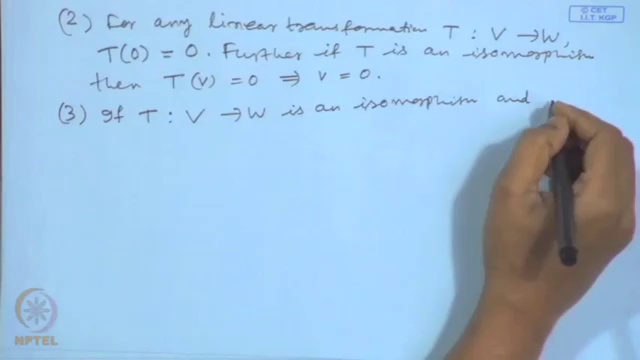 © CET
I.I.T. KGP
(2) For any linear transformation T : V → W,
T(0) = 0. Further if T is an isomorphism
then T(v) = 0 ⇒ v = 0.
(3) If T : V → W is an isomorphism and
NPTEL